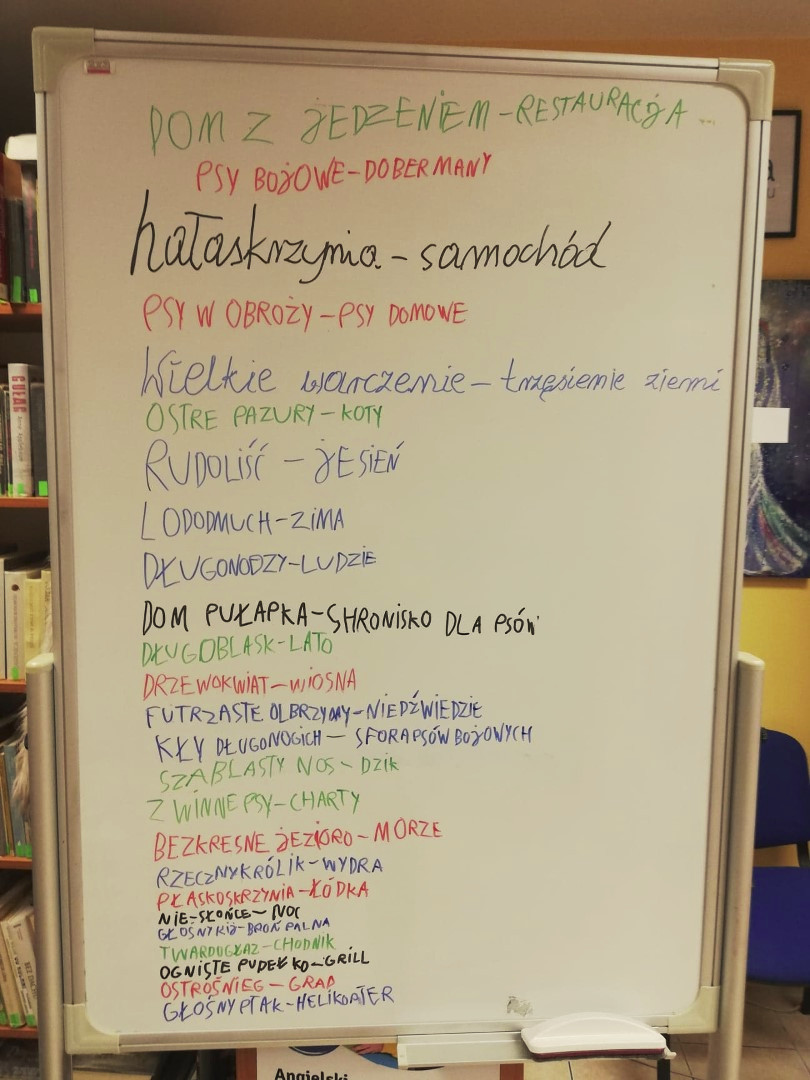 DOM Z JEDZENIEM - RESTAURACJA
PSY BOJOWE - DOBERMANY
hałaskrzynia - samochód
PSY W OBROŻY - PSY DOMOWE
Wielkie warczenie - trzęsienie ziemi
OSTRE PAZURY - KOTY
RUDOLIŚĆ - JESIEŃ
LODODMUCH - ZIMA
DŁUGONODZY - LUDZIE
DOM PUŁAPKA - SHRONISKO DLA PSÓW
DŁUGOBLASK - LATO
DRZEWOKWIAT - WIOSNA
FUTRZASTE OLBRZYMY - NIEDŹWIEDZIE
KŁY DŁUGONOGICH - SFORA PSÓW BOJOWYCH
SZABLASTY NOS - DZIK
ZWINNE PSY - CHARTY
BEZKRESNE JEZIORO - MORZE
RZECZNY KRÓLIK - WYDRA
PŁASKOSKRZYNIA - ŁÓDKA
NIE-SŁOŃCE - NOC
GŁOŚNY KIJ - BROŃ PALNA
TWARDOGŁAZ - CHODNIK
OGNISTE PUDEŁKO - GRILL
OSTROŚNIEG - GRAD
GŁOŚNY PTAK - HELIKOPTER
GUŁAG
Angielski